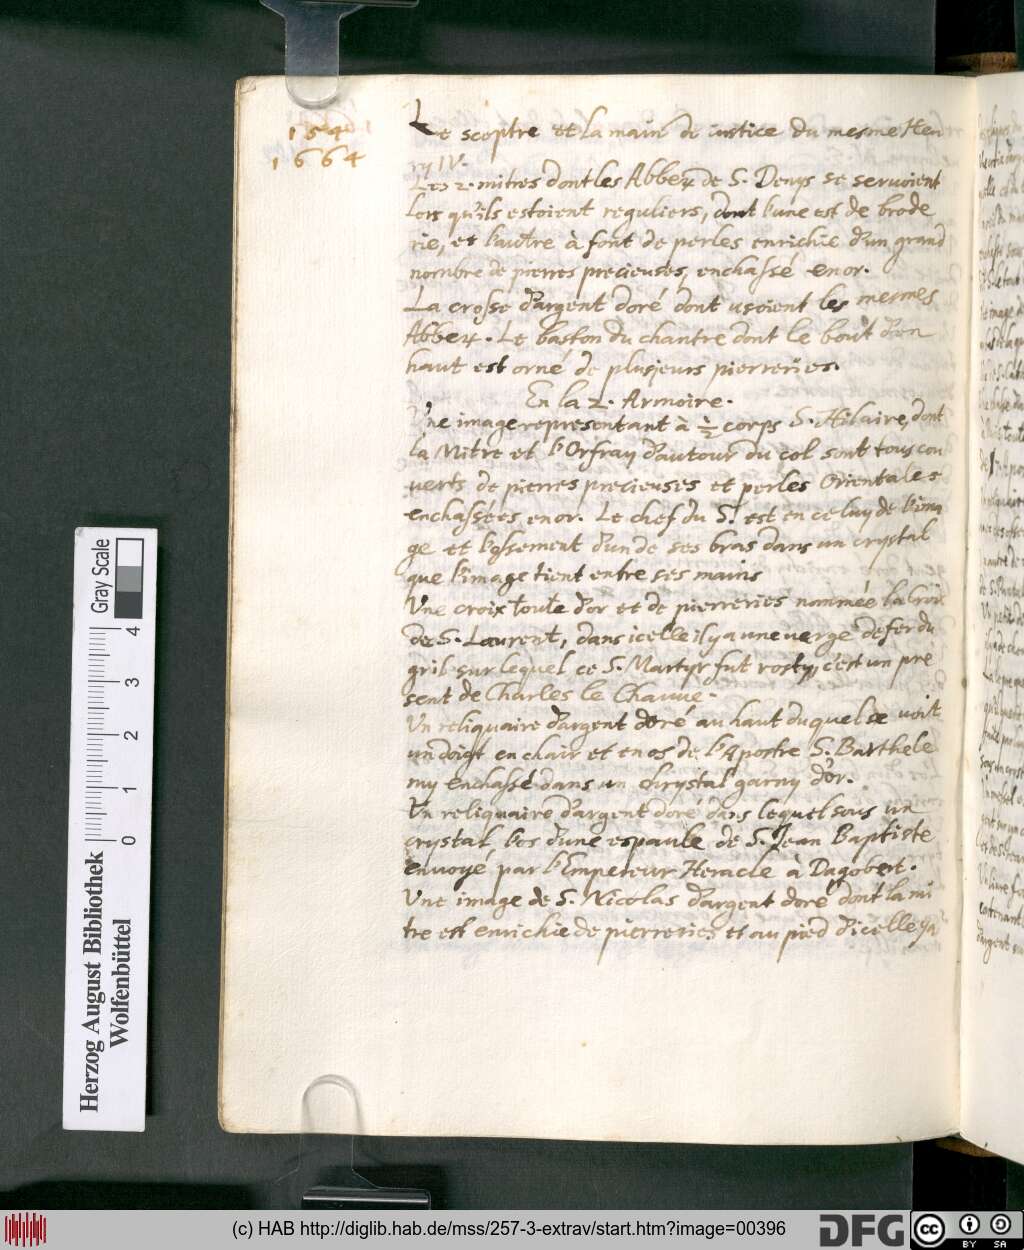 154
1664
Le sceptre et la main de iustice du mesme Hen
ry IV.
Les 2. mitres dont les Abbez de S. Denys se servoient
Lors qu'ils estoient reguliers, dont l'une est de brode
rie, et l'autre à font de perles enrichie d'un grand
nombre de pierres precieuses, enchassé en or.
La crosse d'argent doré dont usoient les mesmes
Abbez. Le baston du chantre dont le bout d'en
haut est orné de plusieurs pierreries.
En la 2. Armoire.
Une image representant à ½ corps S. Hilaire, dont
la Mitre et l'Orfray d'autour du col sont tous cou
verts de pierres precieuses et perles Orientales
enchassées en or. Le chef du S.t est en celuy de l'ima
ge et l'ossement d'un de ses bras dans un crystal
que l'image tient entre ses mains
Une croix toute d'or et de pierreries nommée la Croix
de S. Laurent, dans icelle il y a une verge de fer du
gril sur lequel ce S. Martyr fut rosty, c'est un pre
sent de Charles le Chauve.
Un reliquaire d'argent doré au haut duquel se voit
un doigt en chair et en os de l'Apostre S. Barthele
my enchassé dans un chrystal garny d'or.
Un reliquaire d'argent doré dans lequel sous un
crystal l'os d'une espaule de S. Jean Baptiste
envoyé par l'Empereur Heracle à Dagobert.
Une image de S. Nicolas d'argent doré dont la mi
tre est enrichie de pierreries et au pied d'icelle y a
Herzog August Bibliothek
Wolfenbüttel
Gray Scale
0 1 2 3 4
(c) HAB http://diglib.hab.de/mss/257-3-extrav/start.htm?image=00396
DFG
cc BY SA